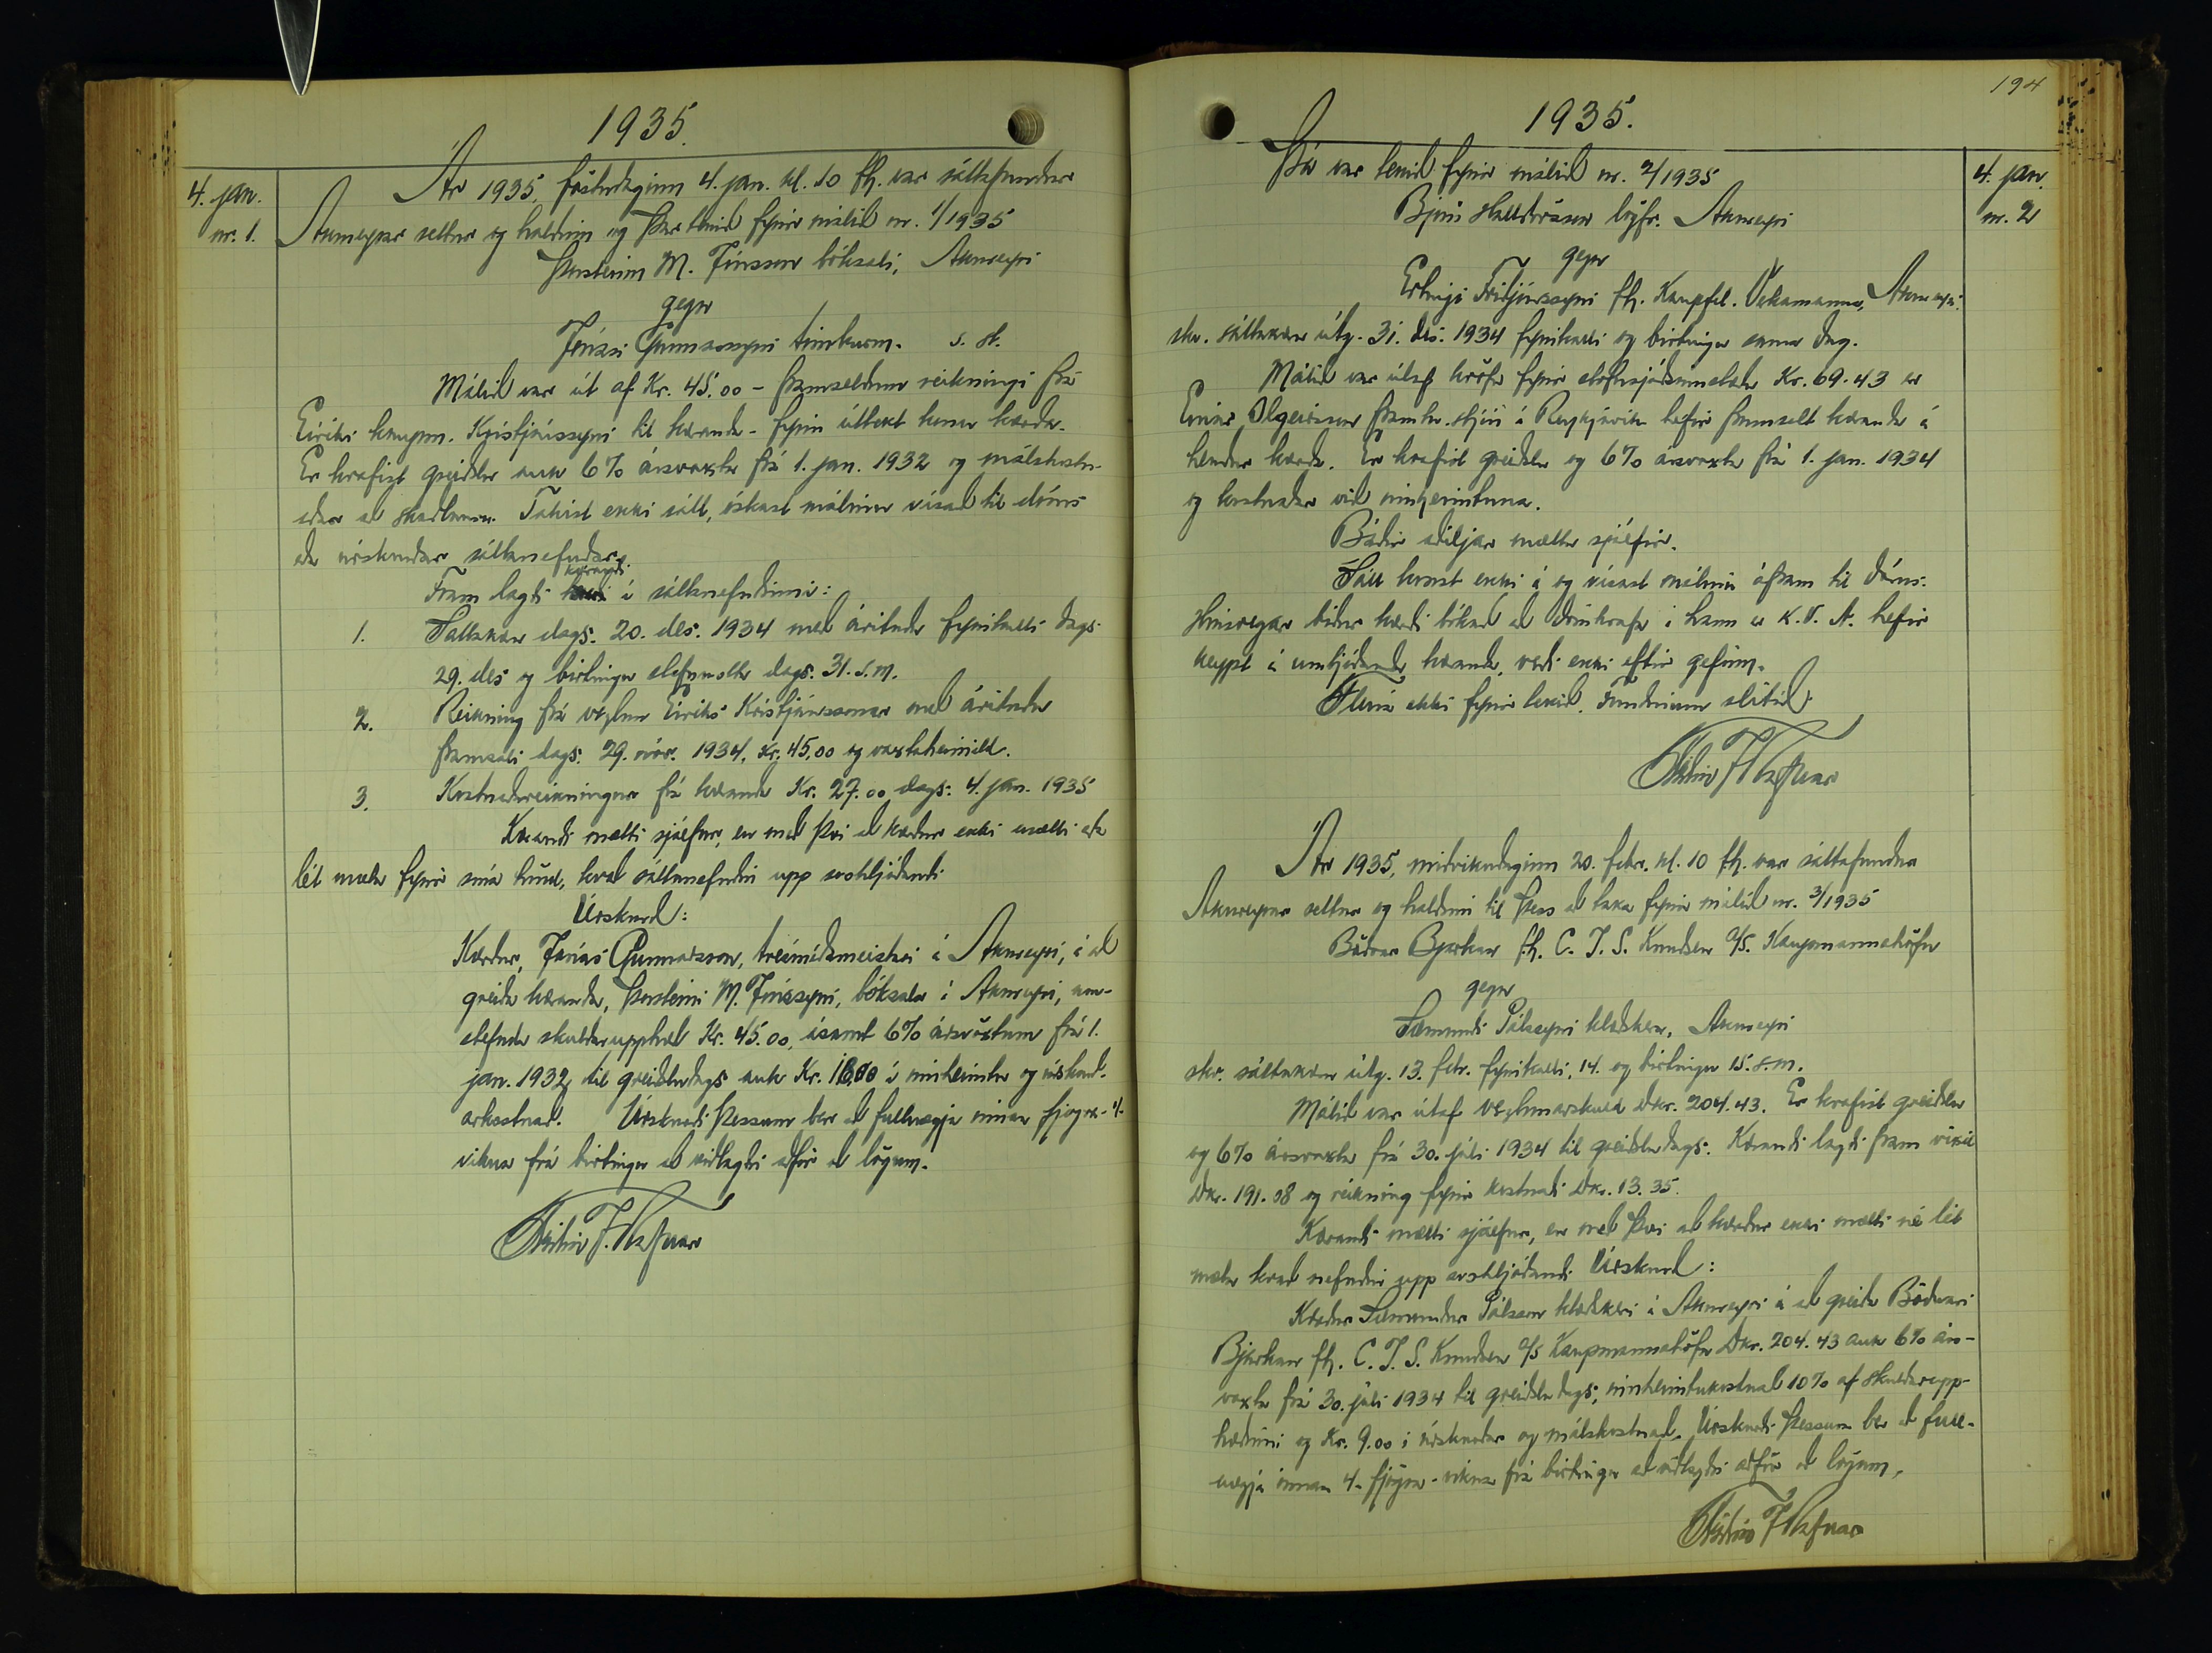 1935.
4. jan.
nr. 1.
Ár 1935, föstudaginn 4. jan. kl. 10 fh. var sáttafundur
Akureyrar settur og haldinn og þar tekið fyrir málið nr. 1/1935
Þorsteinn M. Jónsson bóksali, Akureyri
gegn
Jónasi Gunnarssyni timburm. s. st.
Málið var út af Kr. 45.00 - framseldum reikningi frá
Eiríki kaupm. Kristjánssyni til kæranda - fyrir úttekt hans kærða.
Er krafist greiðslu auk 6% ársvaxta frá 1. jan. 1932 og málskostn-
aðar að skadlausu. Takist ekki sátt, óskast málinu vísað til dóms
eða úrskurðar sáttanefndar.
Fram lagði kærandi í sáttanefndinni:
1. Sáttakæru dags. 20. des. 1934 með áritaðri fyrirkalli dags.
29. des og birtingu stefnuvotta dags. 31. s.m.
2. Reikning frá verzlun Eiríks Kristjánssonar með árituðu
framsali dags. 29. nóv. 1934, Kr. 45,00 og vaxtaheimild.
3. Kostnaðarreikningur frá kæranda Kr. 27.00 dags. 4. jan. 1935
Kærandi mætti sjálfur, en með því að kærður ekki mætti eða
lét mæta fyrir sína hönd, kvað sáttanefndin upp svohljóðandi
Úrskurð:
Kærður, Jónas Gunnarsson, trésmíðameistari á Akureyri, á að
greiða kæranda, Þorsteini M. Jónssyni, bóksala á Akureyri, um-
stefnda skuldarupphæð Kr. 45.00, ásamt 6% ársvöxtum frá 1.
jan. 1932, til greiðsludags auk Kr. 18.00 í innheimtu og úrskurð-
arkostnað. Úrskurði þessum ber að fullnægja innan fjögra -4-
vikna frá birtingu að viðlagðri aðför að lögum.
Friðrik J. Rafnar
194
1935.
4. jan.
nr. 2
Þá var tekið fyrir málið nr. 2/1935
Björn Halldórsson lögfr. Akureyri
gegn
Erlingi Friðjónssyni fh. Kaupfél. Verkamanna, Akureyri
skv. sáttakæru útg. 31. des. 1934 fyrirkalli og birtingu sama dag.
Málið var útaf kröfu fyrir stofnsjóðsinnstæðu Kr. 69.43 er
Einar Olgeirsson framkv.stjóri í Reykjavík hefir framselt kæranda á
hendur kærða. Er krafist greiðslu og 6% ársvaxta frá 1. jan. 1934
og kostnaðar við innheimtuna.
Báðir aðiljar mættu sjálfir.
Sátt komst ekki á og vísast málinu áfram til dóms.
Hinsvegar biður kærði bókað að dómkrafa í hann er K.V.A. hefir
keypt á umbjóðanda kæranda, verði ekki eftir gefinn.
Fleira ekki fyrir tekið. Fundinum slitið.
Friðrik J. Rafnar
Ár 1935, miðvikudaginn 20. febr. kl. 10 fh. var sáttafundur
Akureyrar settur og haldinn til þess að taka fyrir málið nr. 3/1935
Böðvar Bjarkan fh. C. J. S. Knudsen A/S. Kaupmannahöfn
gegn
Sæmundi Pálssyni klæðskera, Akureyri
skv. sáttakæru útg. 13. febr. fyrirkalli, 14. og birtingu 15. s.m.
Málið var útaf verzlunarskuld Dkr. 204.43. Er krafist greiðslu
og 6% ársvaxta frá 30. júlí 1934 til greiðsludags. Kærandi lagði fram víxil
Dkr. 191.08 og reikning fyrir kostnaði Dkr. 13.35.
Kærandi mætti sjálfur, en með því að kærður ekki mætti né lét
mæta kvað nefndin upp svohljóðandi Úrskurð:
Kærður Sæmundur Pálsson klæðskeri á Akureyri á að greiða Böðvari
Bjarkan fh. C. J. S. Knudsen A/S Kaupmannahöfn Dkr. 204.43 auk 6% árs-
vaxta frá 30. júlí 1934 til greiðsludags, innheimtukostnað 10% af skuldarupp-
hæðinni og Kr. 9.00 í úrskurðar og málskostnað. Úrskurði þessum ber að full-
nægja innan 4 - fjögra - vikna frá birtingu að viðlagðri aðför að lögum.
Friðrik J. Rafnar